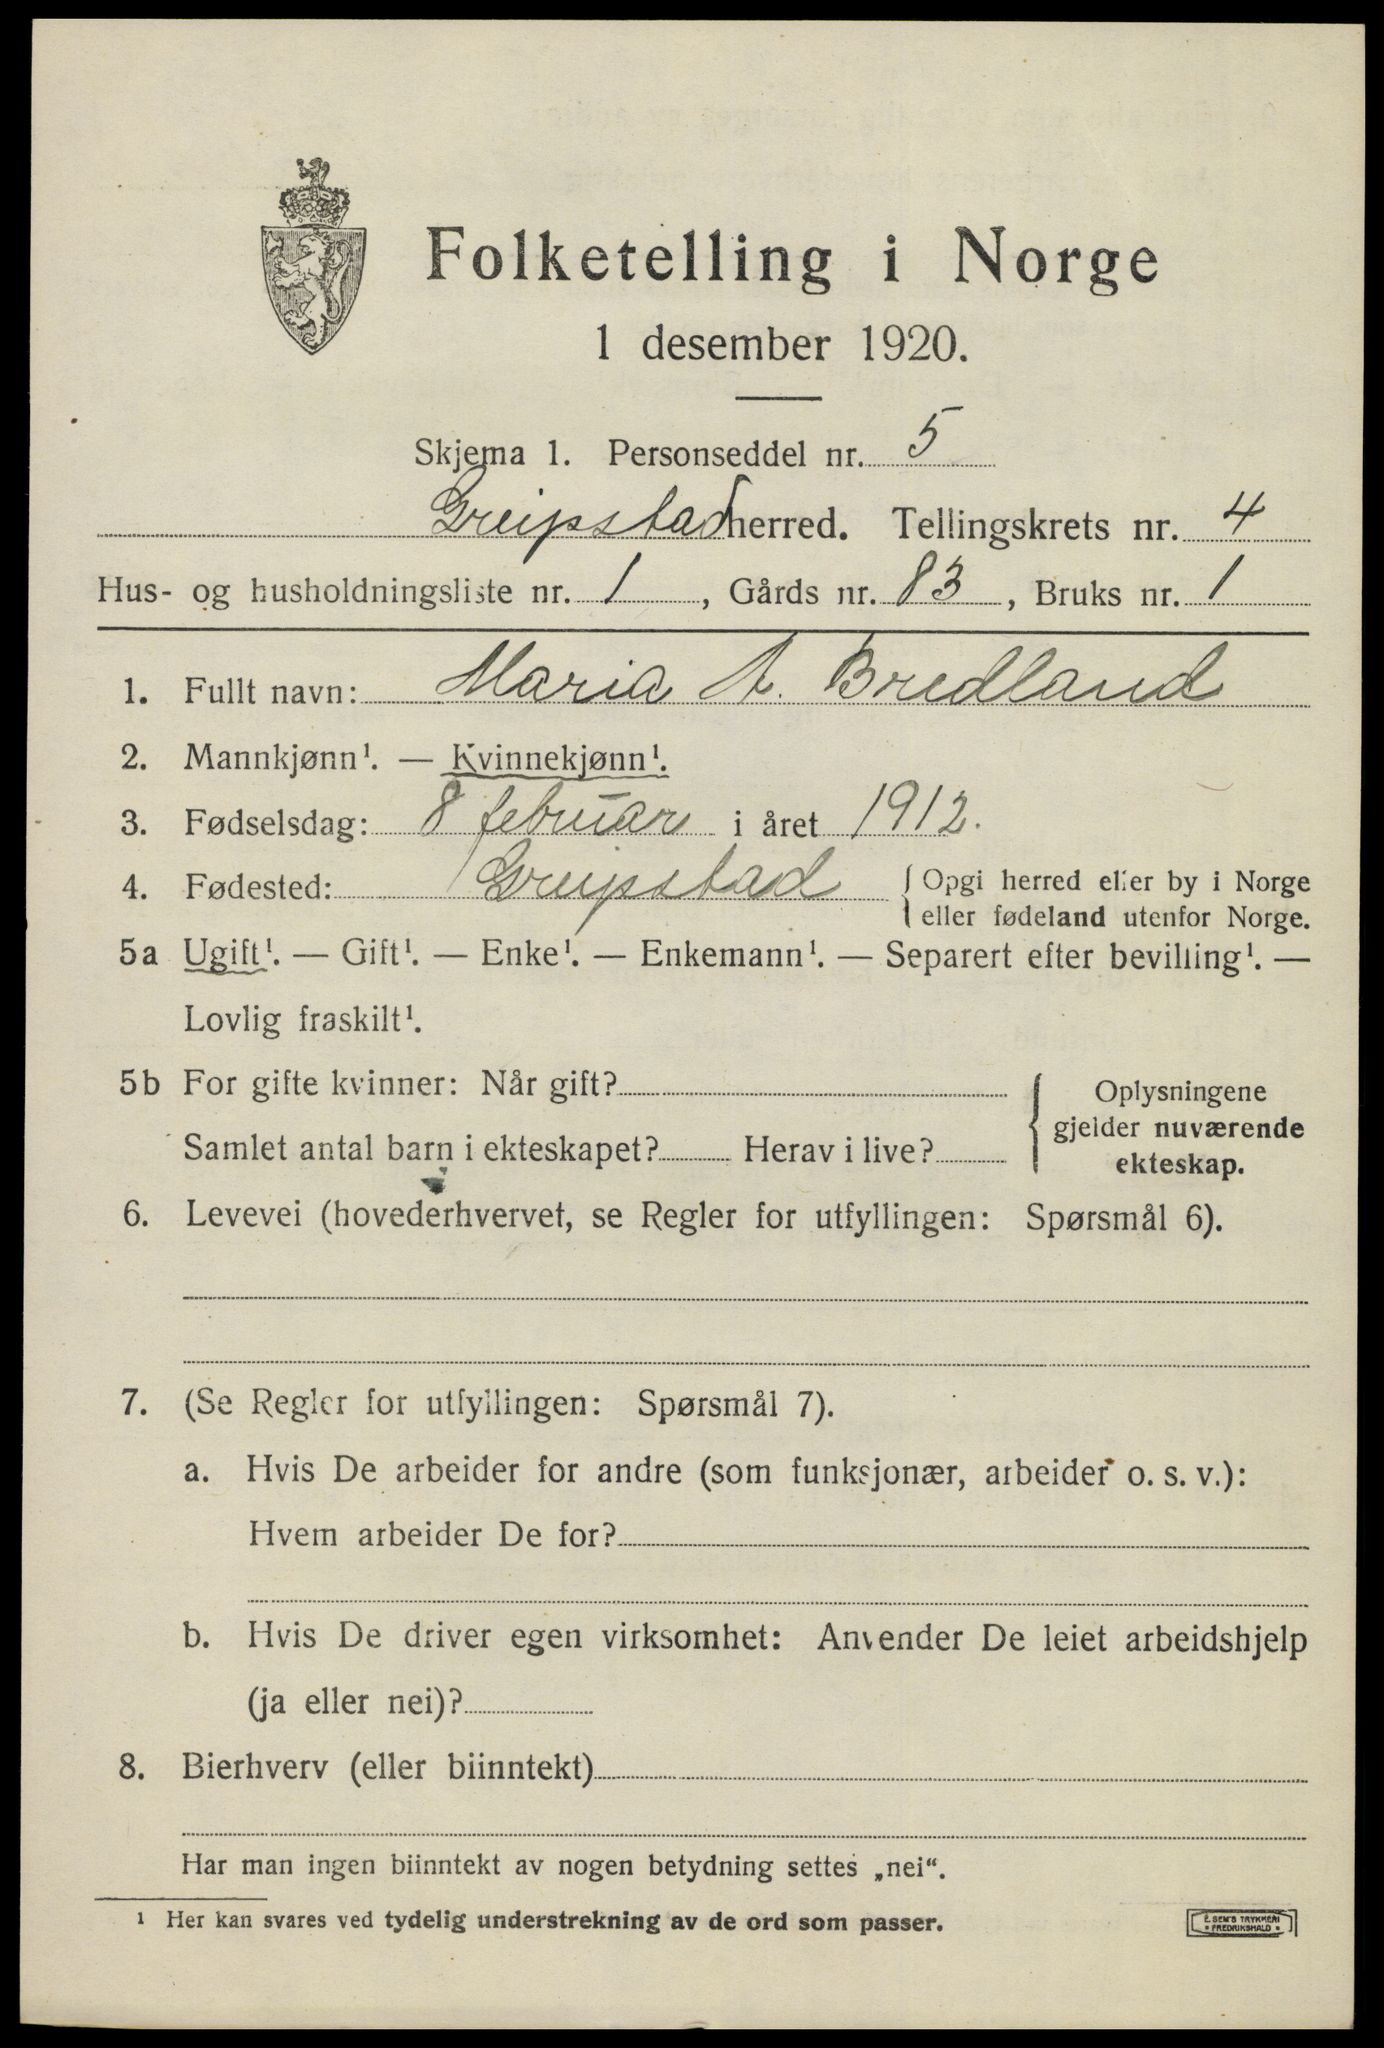 Folketelling i Norge
1 desember 1920.
Skjema 1. Personseddel nr. 5
Greipstad herred. Tellingskrets nr. 4
Hus- og husholdningsliste nr. 1, Gårds nr. 83, Bruks nr. 1
1. Fullt navn: Maria A. Bredland
2. Mannkjønn¹. — Kvinnekjønn¹.
3. Fødselsdag: 8 februar i året 1912.
4. Fødested: Greipstad { Opgi herred eller by i Norge
eller fødeland utenfor Norge.
5a Ugift¹. — Gift¹. — Enke¹. — Enkemann¹. — Separert efter bevilling¹. —
Lovlig fraskilt¹.
5b For gifte kvinner: Når gift?
Samlet antal barn i ekteskapet? Herav i live?
Oplysningene
gjelder nuværende
ekteskap.
6. Levevei (hovederhvervet, se Regler for utfyllingen: Spørsmål 6).
7. (Se Regler for utfyllingen: Spørsmål 7).
a. Hvis De arbeider for andre (som funksjonær, arbeider o. s. v.):
Hvem arbeider De for?
b. Hvis De driver egen virksomhet: Anvender De leiet arbeidshjelp
(ja eller nei)?
8. Bierhverv (eller biinntekt)
Har man ingen biinntekt av nogen betydning settes „nei“.
¹ Her kan svares ved tydelig understrekning av de ord som passer.
E. SEM'S TRYKKERI
• FREDRIKSHALD •